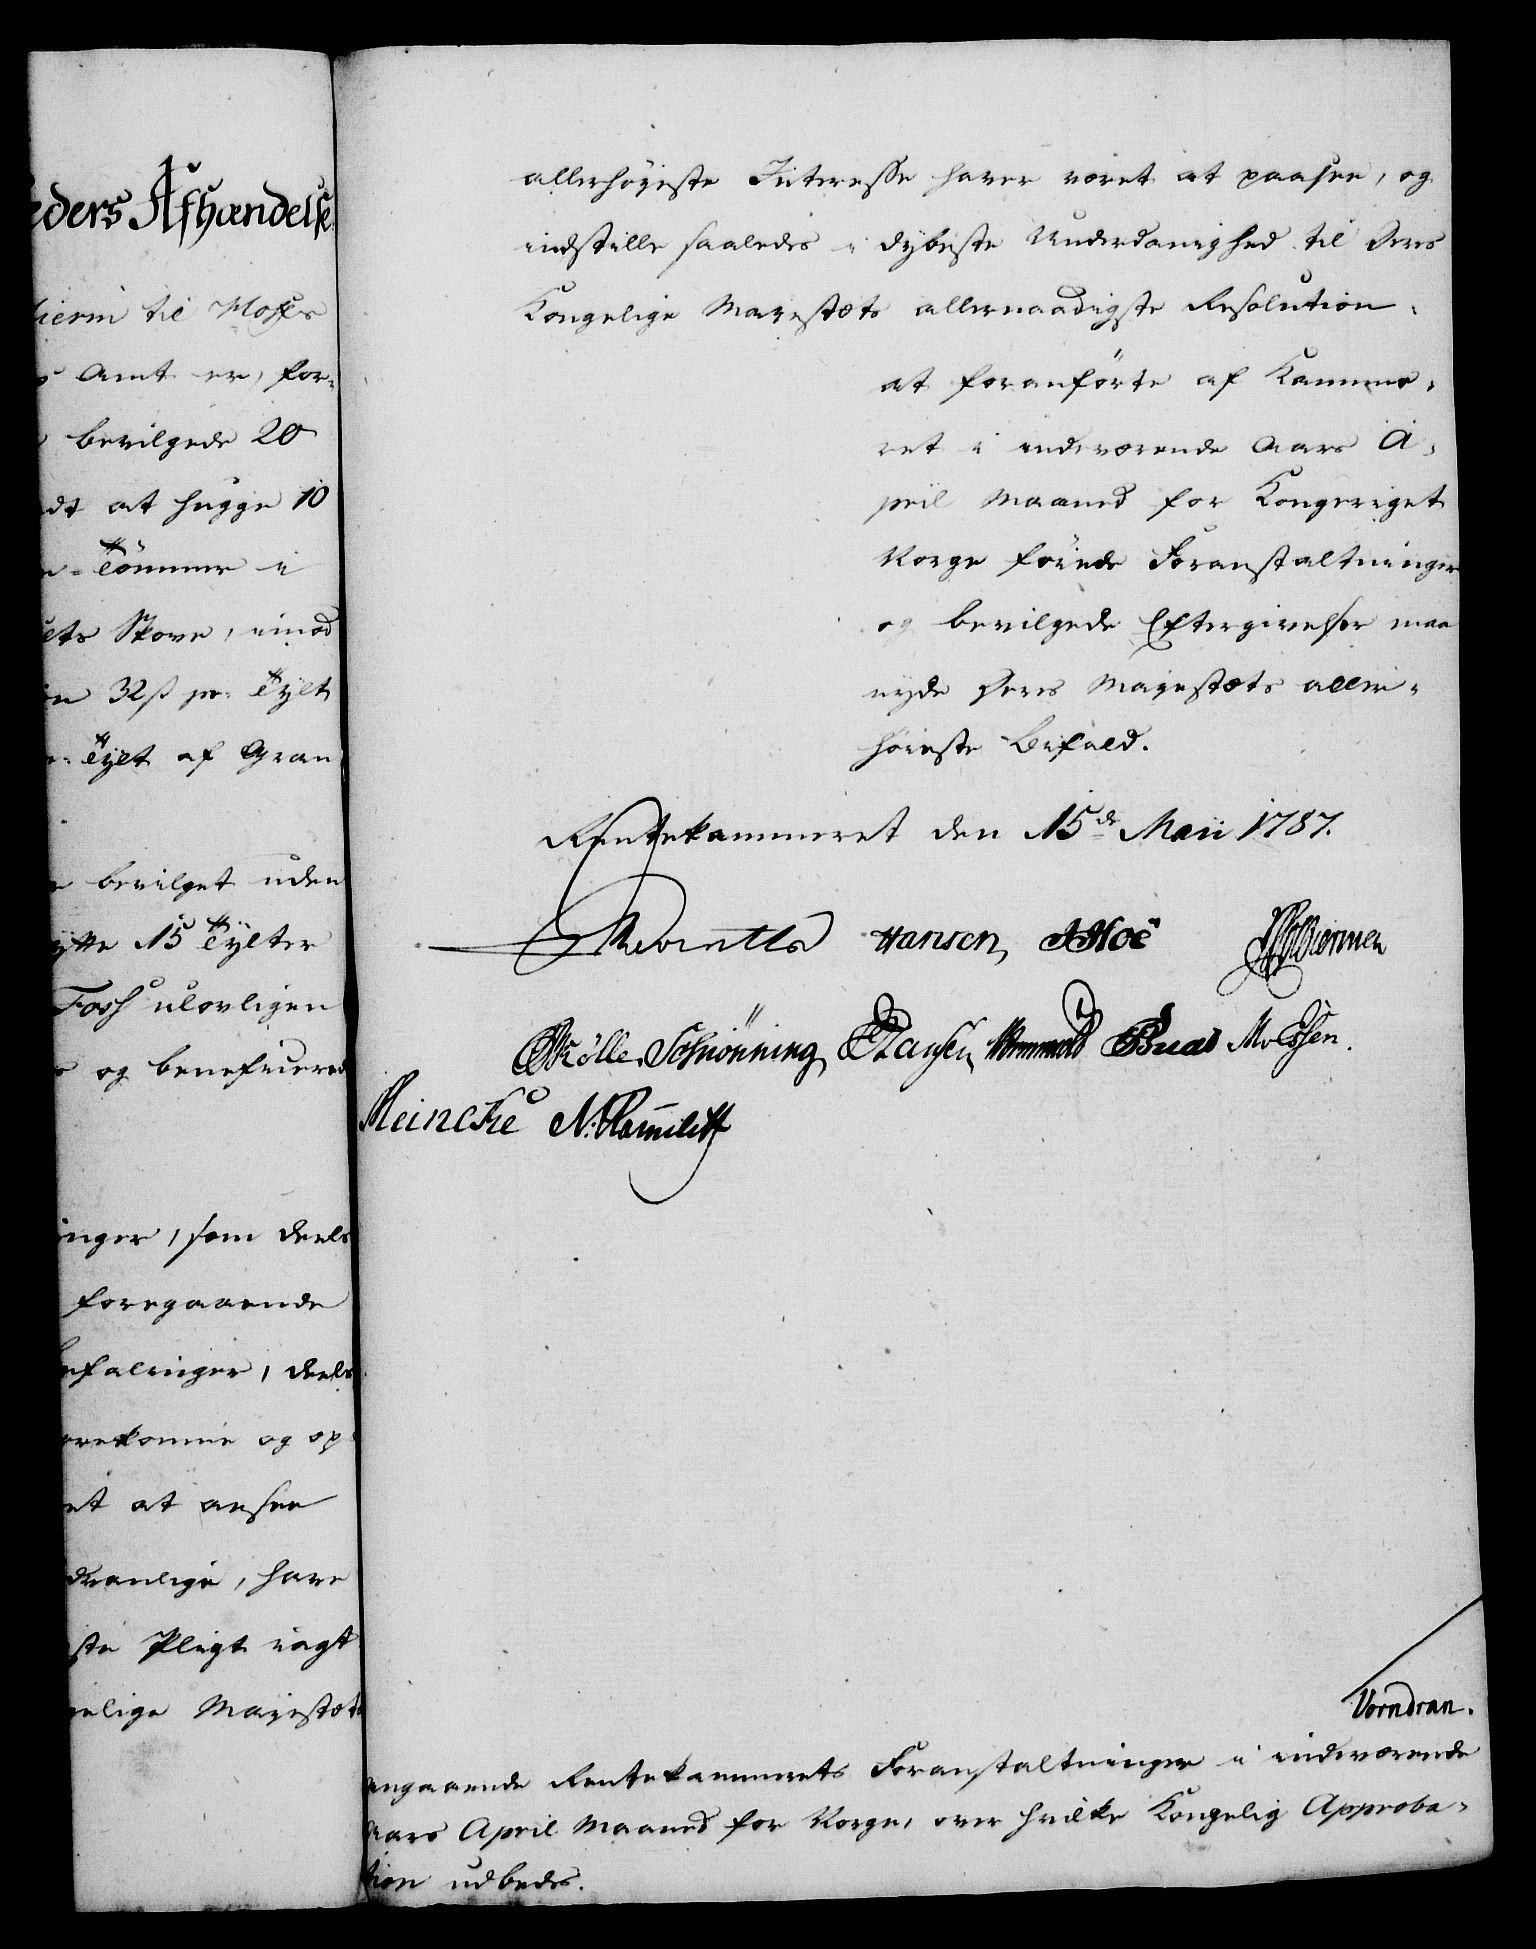 eders Afhændelse.
til Moss
Amt er, for-
bevilgede 20
at hugge 10
Tömmer i
Skove, imod
32 ß pr: Tylt
Tylt af Gran
bevilget uden
15 Tylter
Foss ulovligen
og beneficered
inger, som deels
foregaaende
befalinger, deels
orekomne og op
et at ansee
dranlige, have
ste Pligt iagt
gelige Majestæts
allerhöyeste Interesse haver været at paasee, og
indstille saaledes i dybeste Underdanighed til Deres
Kongelige Mayestæts allernaadigste Resolution:
at foranförte af Kamme-
ret i indeværende Aars A-
pril Maaned for Kongeriget
Norge föiede Foranstaltninger
og bevilgede Eftergivelser maa
nyde Deres Majestæts aller-
höieste Bifald.
Rentekammeret den 15de Maii 1787.
Reventlow Hansen, JHoë
Rölle. Schiönning, Hansen, Bua MvEssen.
Meincke N:
Vorndran.
angaaende Rentekammerets Foranstaltninger i indeværende
Aars April Maaned for Norge, over hvilke Kongelig Approba-
tion udbedes.